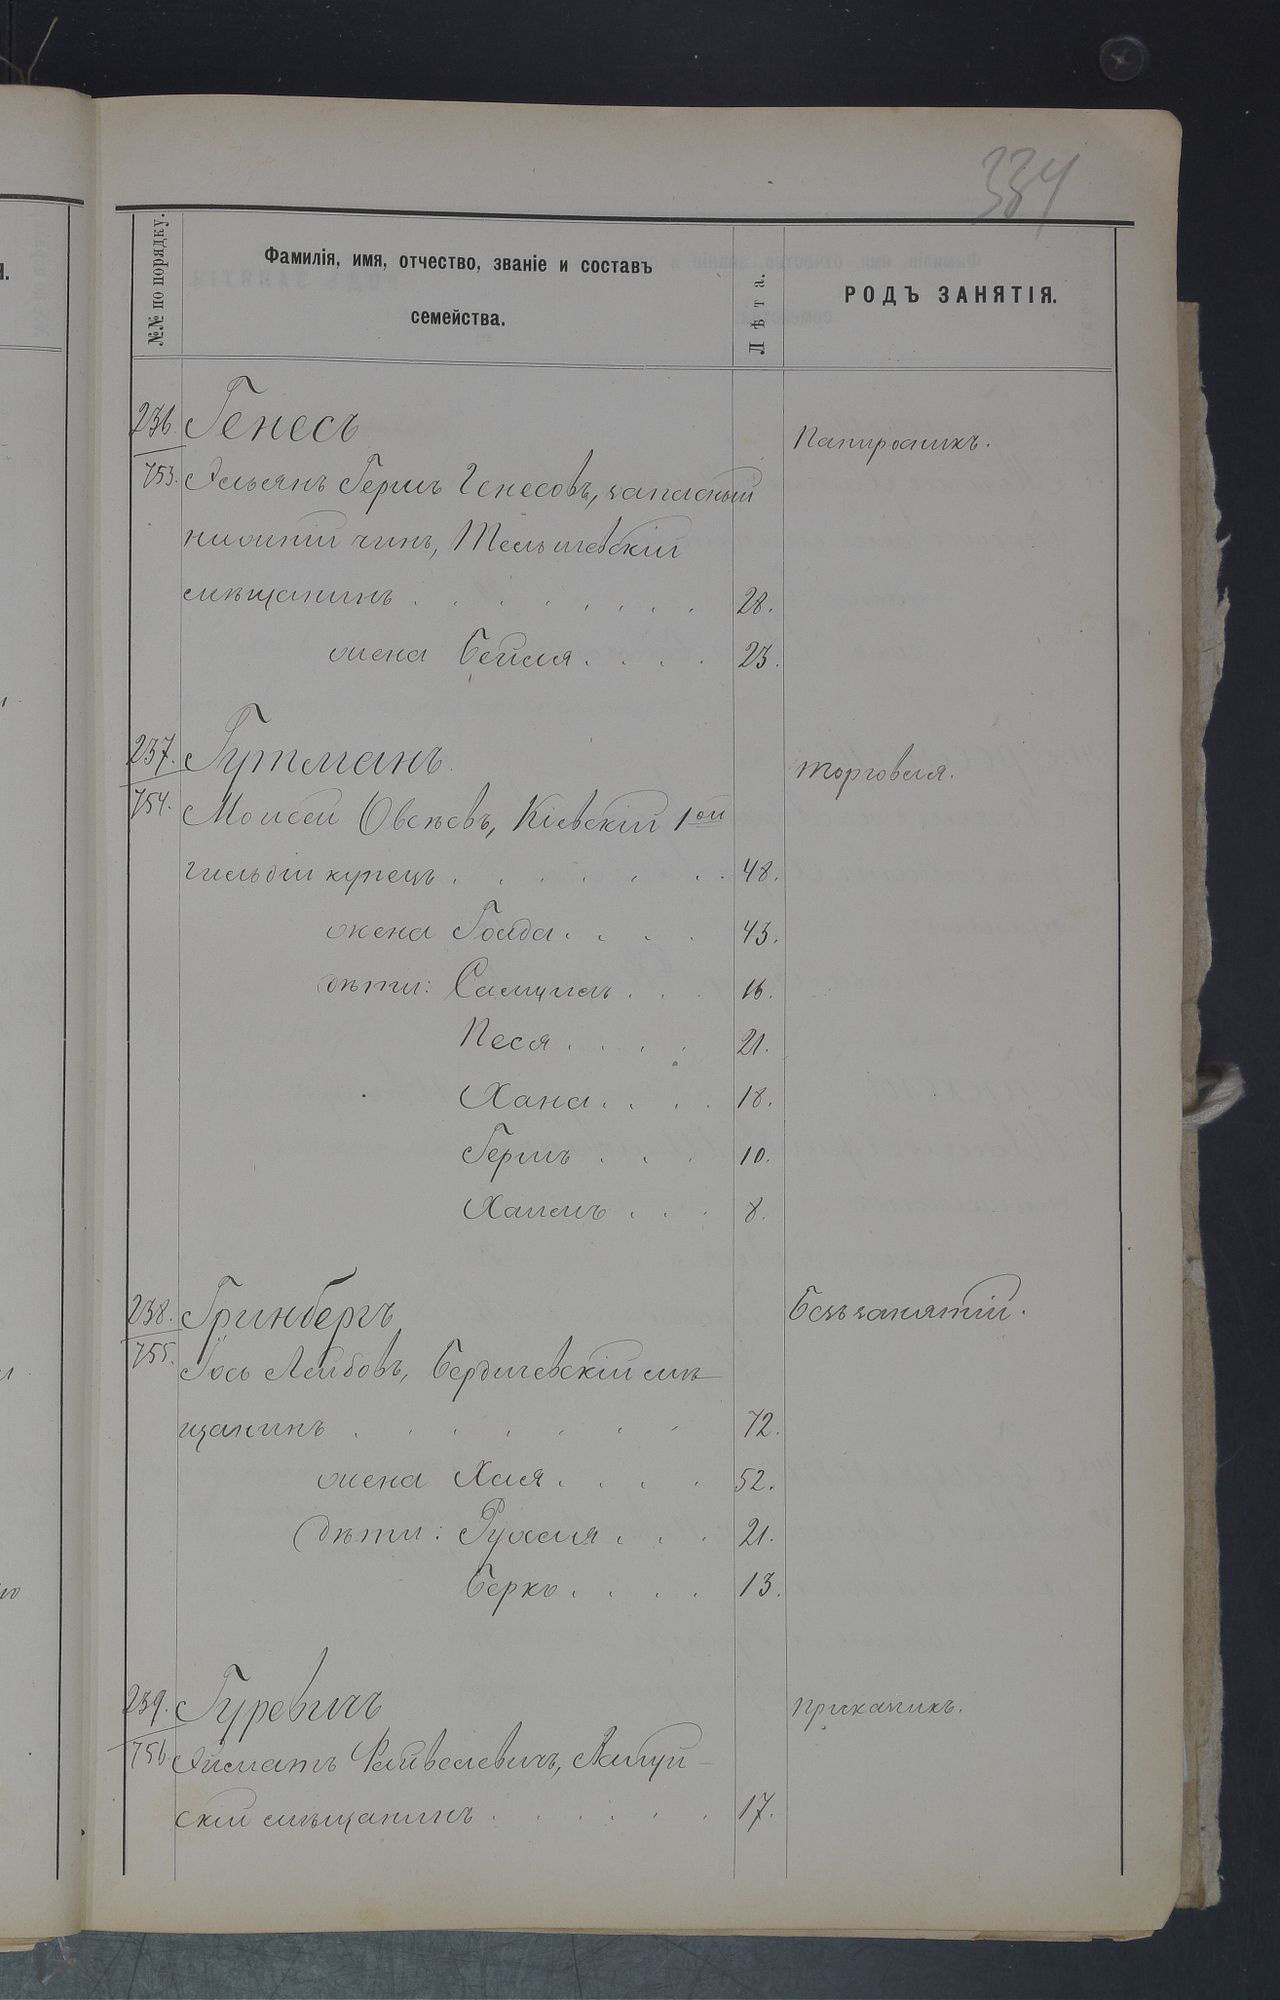 334
№№ по порядку.
Фамилія, имя, отчество, званіе и составъ
семейства.
Лѣта.
РОДЪ ЗАНЯТІЯ.
236. Генесъ
Папиросникъ.
753. Эльянъ Гершъ Генесовъ, запасный
нижній чинъ, Тельшевскій
мѣщанинъ . . . . . . . 28.
жена Бейля . . . . 23.
237. Гутманъ
торговля.
754. Моисей Овсѣевъ, Кіевскій 1ой
гильдіи купецъ . . . . . . . 48.
жена Голда . . . . 43.
дѣти: Самуилъ . . . 16.
Песя . . . . 21.
Хана . . . . 18.
Гершъ . . . 10.
Хаимъ . . . 8.
238. Гринбергъ
Безъ занятій.
755. Іось Лейбовъ, Бердичевскій мѣ
щанинъ . . . . . . . 72.
жена Хая . . . . 52.
дѣти: Рухля . . . 21.
Берко . . . . 13.
239. Гуревичъ
прикащикъ.
756. Файвелевичъ,
скій мѣщанинъ . . . . . . 17.